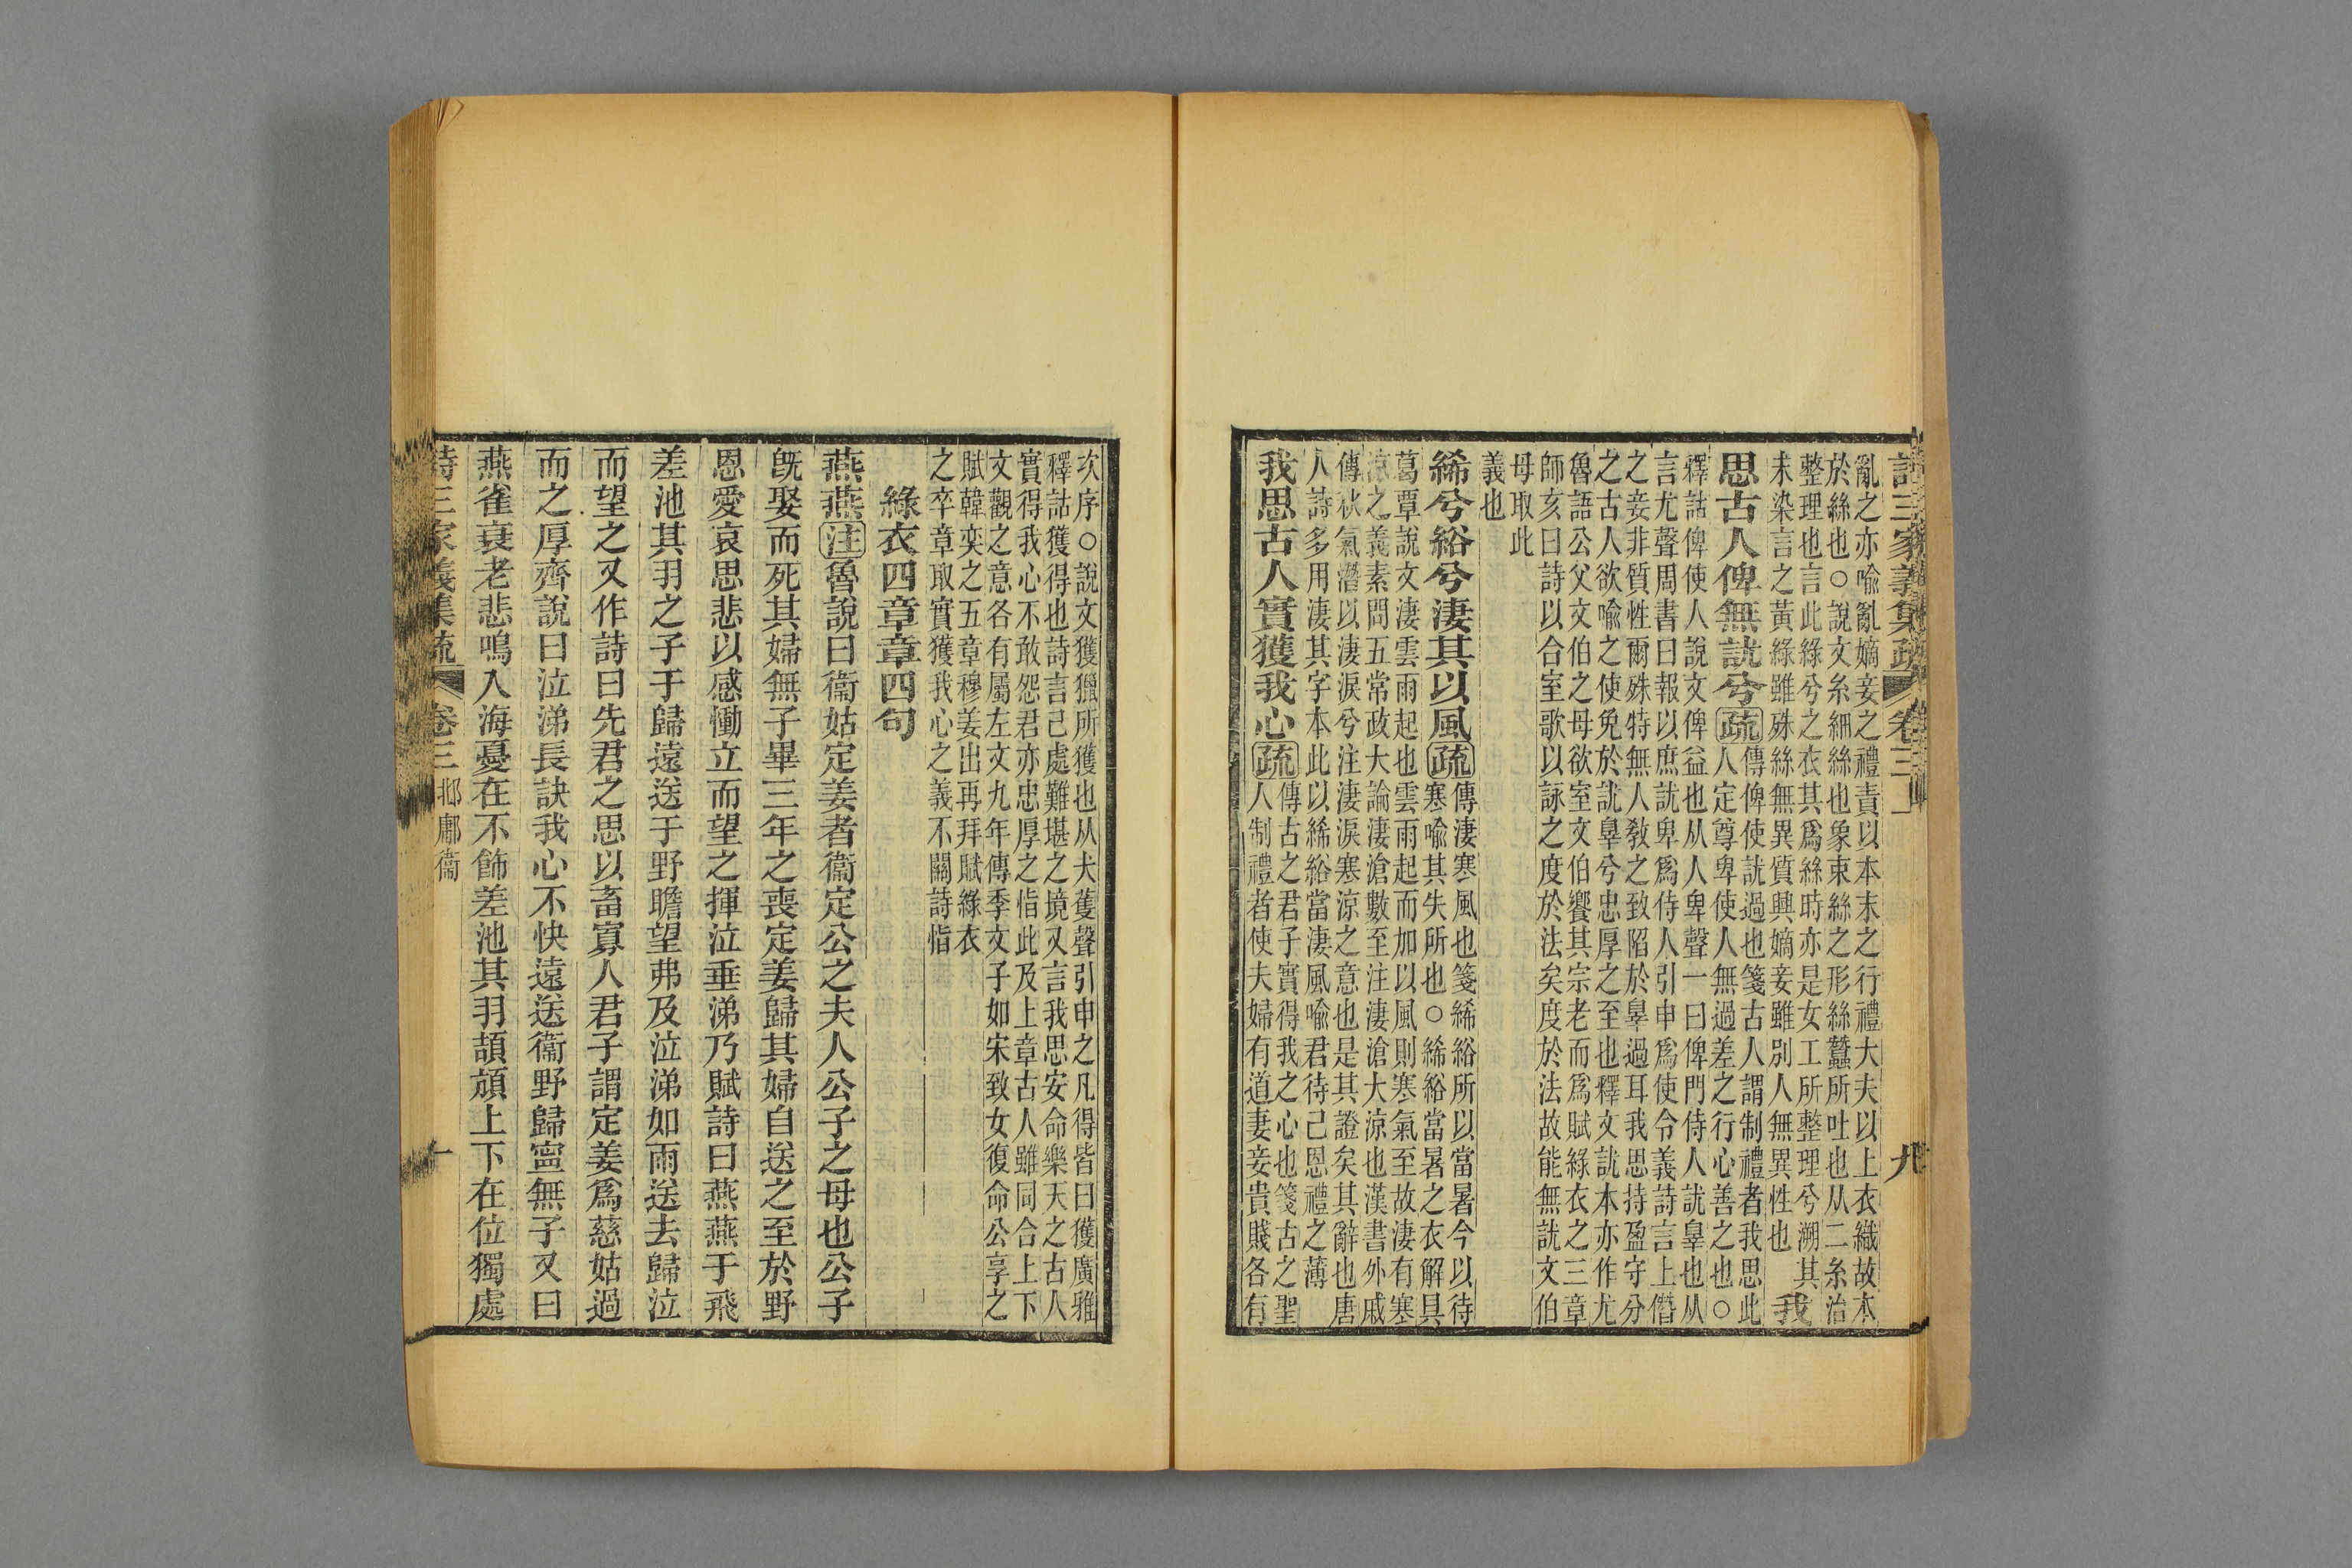 詩三家義集疏 卷三 九
亂之亦喻亂嫡妾之禮責以本末之行禮大夫以上衣織故本
於絲也○說文糸細絲也象束絲之形絲蠶所吐也从二糸治
整理也言此綠兮之衣其爲絲時亦是女工所整理兮溯其
未染言之黃綠雖殊絲無異質興嫡妾雖別人無異性也 我
思古人俾無訧兮疏 傳俾使訧過也箋古人謂制禮者我思此
人定尊卑使人無過差之行心善之也○
釋詁俾使人說文俾益也从人卑聲一曰俾門侍人訧辠也从
言尤聲周書曰報以庶訧卑爲侍人引申爲使令義詩言上僭
之妾非質性爾殊特無人敎之致陷於辠過耳我思持盈守分
之古人欲喻之使免於訧辠兮忠厚之至也釋文訧本亦作尤
魯語公父文伯之母欲室文伯饗其宗老而爲賦綠衣之三章
師亥曰詩以合室歌以詠之度於法矣度於法故能無訧文伯
母取此
義也
絺兮綌兮淒其以風疏 傳淒寒風也箋絺綌所以當暑今以待
寒喻其失所也○絺綌當暑之衣解具
葛覃說文淒雲雨起也雲雨起而加以風則寒氣至故淒有寒
涼之義素問五常政大論淒滄數至注淒滄大涼也漢書外戚
傳秋氣潛以淒淚兮注淒淚寒涼之意也是其證矣其辭也唐
人詩多用淒其字本此以絺綌當淒風喻君待己恩禮之薄
我思古人實獲我心疏 傳古之君子實得我之心也箋古之聖
人制禮者使夫婦有道妻妾貴賤各有
次序○說文獲獵所獲也从犬蒦聲引申之凡得皆曰獲廣雅
釋詁獲得也詩言己處難堪之境又言我思安命樂天之古人
實得我心不敢怨君亦忠厚之恉此及上章古人雖同合上下
文觀之意各有屬左文九年傳季文子如宋致女復命公享之
賦韓奕之五章穆姜出再拜賦綠衣
之卒章取實獲我心之義不關詩恉
綠衣四章章四句
燕燕注魯說曰衞姑定姜者衞定公之夫人公子之母也公子
旣娶而死其婦無子畢三年之喪定姜歸其婦自送之至於野
恩愛哀思悲以感慟立而望之揮泣垂涕乃賦詩曰燕燕于飛
差池其羽之子于歸遠送于野瞻望弗及泣涕如雨送去歸泣
而望之又作詩曰先君之思以畜寡人君子謂定姜爲慈姑過
而之厚齊說曰泣涕長訣我心不快遠送衞野歸寧無子又曰
燕雀衰老悲鳴入海憂在不飾差池其羽頡頏上下在位獨處
詩三家義集疏 卷三 邶鄘衞 十